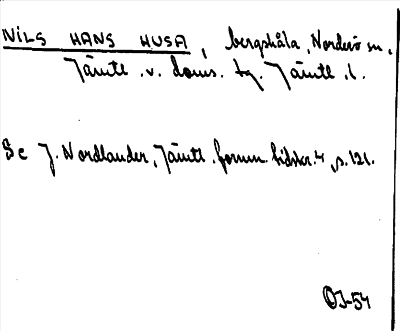 NILS HANS HUSA, bergshåla, Norderö sn,
Jämtl. v. doms. tg. Jämtl. l.
Se J. Nordlander, Jämtl. fornm. tidskr. 4, s. 121.
OJ-54